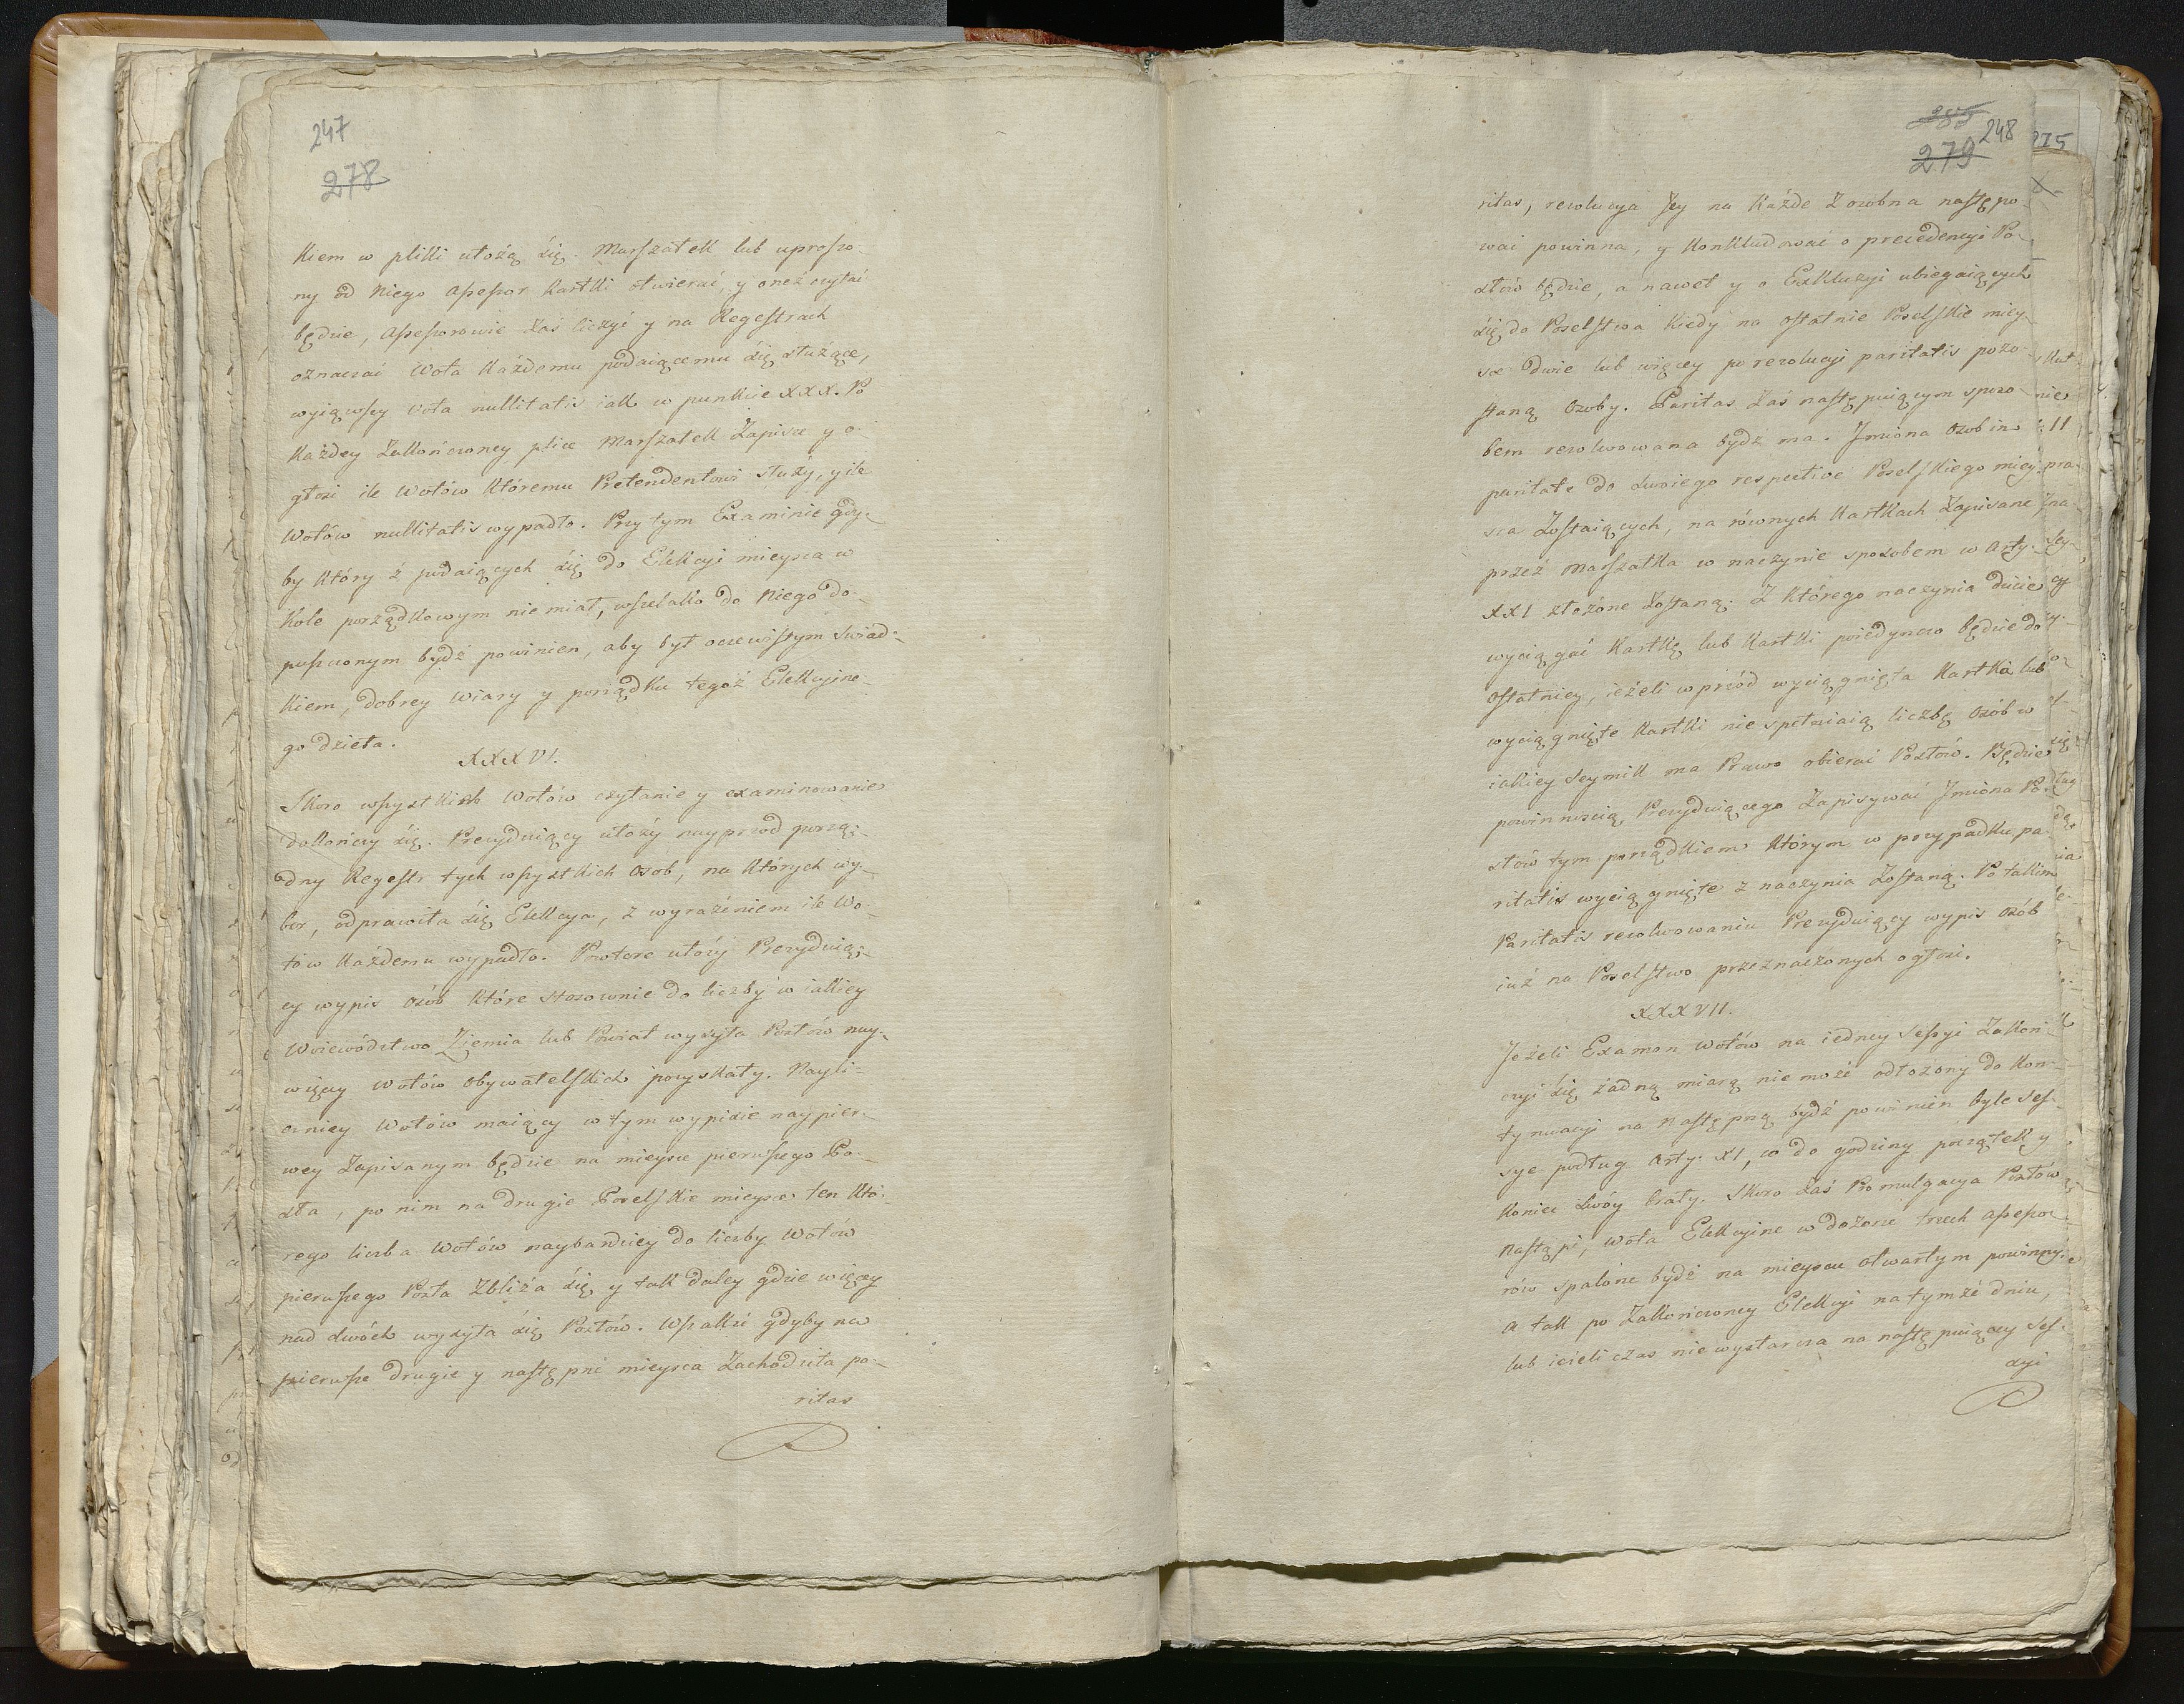 247
278
kiem w pliki ułożą się. Marszałek lub uproszo-
ny od niego Assessor kartki otwierać, y oneż czytać
będzie, Assessorowie zaś liczyć y na Regestrach
oznaczać wota każdemu podaiącemu się służące,
wyiąwszy vota nullitatis iak w punkcie XXX. Po
każdey zakończoney plice Marszałek zapisze y o-
głosi ile wotów któremu Pretendentowi służy, y ile
wotów nullitatis wypadło. Przy tym Examinie gdy-
by który z podaiących się do Elekcyi mieysca w
kole porządkowym nie miał, wszelako do niego do-
puszczonym bydź powinien, aby był oczewistym świad-
kiem, dobrey wiary y porządku tegoż Elekcyine-
go dzieła.
XXXVI.
Skoro wszystkich wotów czytanie y examinowanie
dokończy się. Prezyduiący ułoży nayprzod porzą-
dny Regestr tych wszystkich osob, na których wy-
bor, odprawiła się Elekcya, z wyrażeniem ile wo-
tów każdemu wypadło. Powtore ułoży Prezyduią-
cy wypis osób które stosownie do liczby w iakiey
Woiewództwo Ziemia lub Powiat wysyła Posłów nay-
więcy wotów obywatelskich pozyskały. Nayli-
czniey wotów maiący w tym wypisie naypier-
wey zapisanym będzie na mieysce pierwszego Po-
sła, po nim na drugie Poselskie mieysce ten któ-
rego liczba wotów naybardziey do liczby wotów
pierwszego Posła zbliża się y tak daley gdzie więcey
nad dwóch wysyła się Posłów. Wszakże gdyby na
pierwsze drugie y następne mieysca zachodziła pa-
ritas
279
248
275
ritas, rezolucya Jey na każde z osobna następo-
wać powinna, y konkludować o precedencyi Po-
słów będzie, a nawet y o Exkluzyi ubiegaiących
się do Poselstwa kiedy na ostatnie Poselskie miey-
sce dwie lub więcey po rezolucyi paritatis pozo-
staną osoby. Paritas zaś następuiącym sposo-
bem rezolwowana bydź ma. Imiona osob in
paritate do swoiego respective Poselskiego miey-
sca zostaiących, na równych kartkach zapisane
przez Marszałka w naczynie sposobem w Arty.
XXI złożone zostaną. Z którego naczynia dziecie
wyciągać kartkę lub kartki poiedynczo będzie do
ostatniey, ieżeli wprzód wyciągnięta kartka lub
wyciągnięte kartki nie spełniaią liczbę osób w
iakiey Seymik ma Prawo obierać Posłów. Będzie
powinnością Prezyduiącego zapisywać Imiona Po-
słów tym porządkiem którym w przypadku pa-
ritatis wyciągnięte z naczynia zostaną. Po takim
Paritatis rezolwowaniu Prezyduiący wypis osób
iuż na Poselstwo przeznaczonych ogłosi.
XXXVII.
Jeżeli Examen wotów na iedney sessyi zakoń-
czyć się żadną miarą nie może odłożony do kon-
tynuacyi na następną bydź powinien byle ses-
sye podług Arty. XI, co do godziny początek y
koniec swóy brały. Skoro zaś Promulgacya Posłów
nastąpi, wota Elekcyine w dozorze trzech Assesso-
rów spalone bydź na mieyscu otwartym powinny.
A tak po zakończoney Elekcyi na tymże dniu,
lub ieżeli czas nie wystarcza na następuiącey ses-
syi